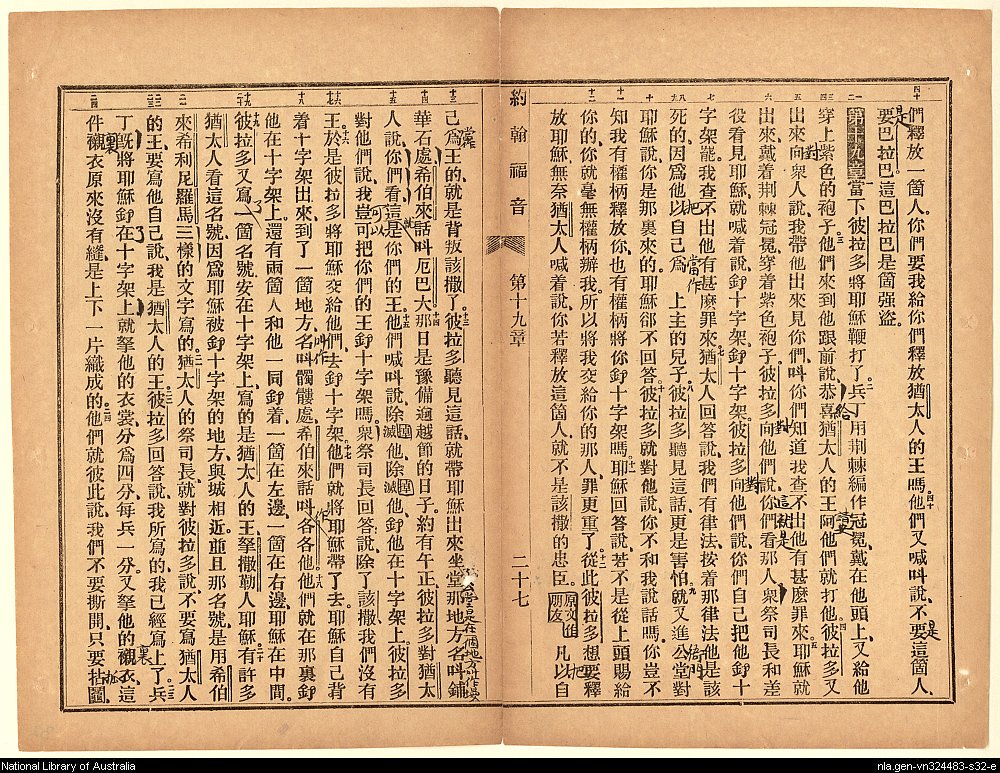 們釋放一箇人、你們要我給你們釋放猶太人的王嗎他們又喊呌說、不要這箇人、
要巴拉巴、這巴拉巴是箇强盜。
第十九章當下彼拉多將耶穌鞭打了。兵丁用荆棘編作冠冕、戴在他頭上、又給他
穿上紫色的袍子、他們來到他跟前說、恭喜猶太人的王阿、他們就打他、彼拉多又
出來向衆人說、我帶他出來見你們、呌你們知道我查不出他有甚麽罪來、耶穌就
出來戴着荆棘冠冕、穿着紫色袍子、彼拉多向他們說、你們看那人、衆祭司長和差
役看見耶穌、就喊着說、釘十字架、釘十字架、彼拉多向他們說、你們自己把他釘十
字架罷、我查不出他有甚麽罪來、猶太人回答說、我們有律法、按着那律法他是該
死的、因爲他以自己爲 上主的兒子、彼拉多聽見這話、更是害怕、就又進公堂對
耶穌說、你是那裏來的、耶穌卻不回答、彼拉多就對他說、你不和我說話嗎、你豈不
知我有權柄釋放你、也有權柄將你釘十字架嗎、耶穌回答說、若不是從上頭賜給
你的、你就毫無權柄辦我、所以將我交給你的那人、罪更重了、從此彼拉多想要釋
放耶穌、無奈猶太人喊着說、你若釋放這箇人、就不是該撒的忠臣、原文作朋友 凡以自
約翰福音 第十九章 二十七
己爲王的、就是背叛該撒了、彼拉多聽見這話、就帶耶穌出來坐堂、那地方名呌鋪
華石處、希伯來話呌厄巴大、那日是豫備逾越節的日子、約有午正、彼拉多對猶太
人說、你們看這是你們的王、他們喊呌說、除滅他、除滅他、釘他在十字架上、彼拉多
對他們說、我豈可把你們的王釘十字架嗎、衆祭司長回答說、除了該撒、我們沒有
王、於是彼拉多將耶穌交給他們、去釘十字架、他們就將耶穌帶了去、耶穌自己背
着十字架出來、到了一箇地方、名呌髑髏處、希伯來話呌各各他、他們就在那裏釘
他在十字架上、還有兩箇人和他一同釘着、一箇在左邊、一箇在右邊、耶穌在中間。
彼拉多又寫一箇名號、安在十字架上、寫的是猶太人的王拏撒勒人耶穌、有許多
猶太人看這名號、因爲耶穌被釘十字架的地方、與城相近、並且那名號、是用希伯
來希利尼羅馬三樣的文字寫的、猶太人的祭司長、就對彼拉多說、不要寫猶太人
的王、要寫他自己說、我是猶太人的王、彼拉多回答說、我所寫的、我已經寫上了、兵
丁旣將耶穌釘在十字架上、就拏他的衣裳分爲四分、每兵一分、又拏他的襯衣、這
件襯衣、原來沒有縫、是上下一片織成的、他們就彼此說、我們不要撕開、只要拈鬮
National Library of Australia
nla.gen-vn324483-s32-e